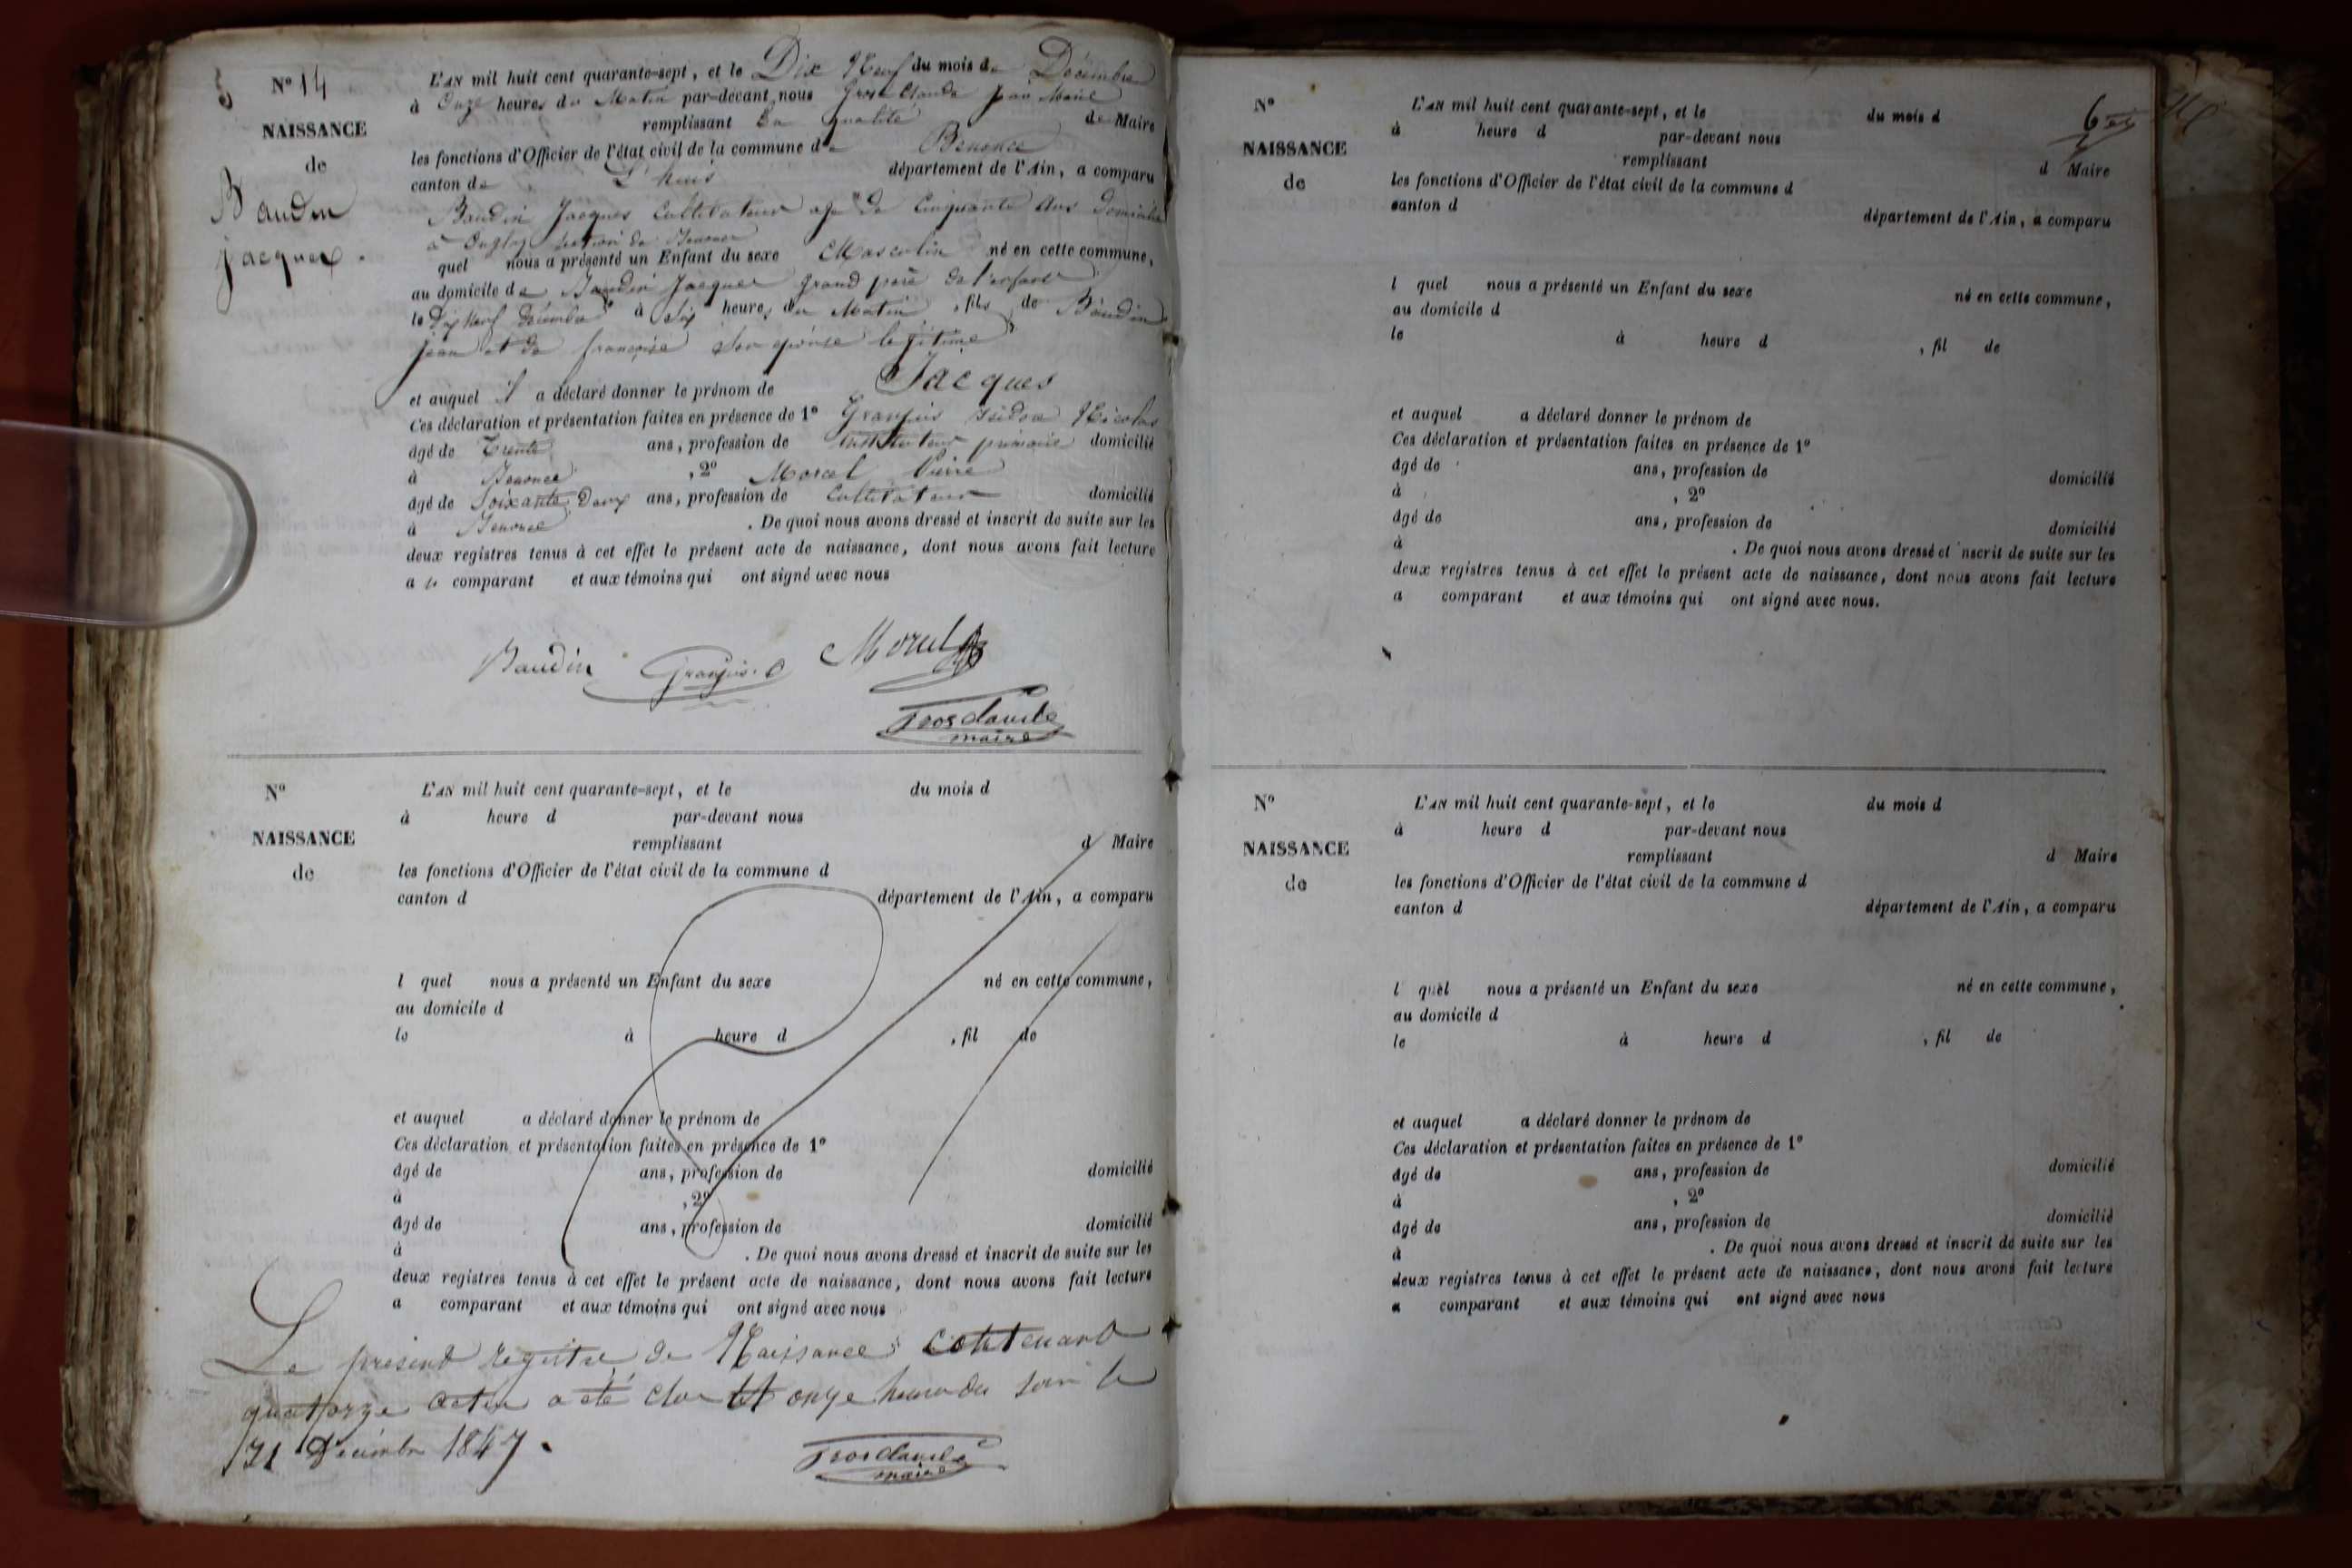 5
N° 14
NAISSANCE
de
Baudin
jacques.
L'AN mil huit cent quarante-sept, et le Dix Neuf du mois de Décembre
à Onze heures du Matin par-devant nous Gros Claude jean Marie
remplissant En qualité de Maire
les fonctions d'Officier de l'état civil de la commune de Benonce
canton de L'huis département de l'Ain, a comparu
Baudin Jacques Cultivateur agé de Cinquante Ans domicilié
à section de Benonce
quel nous a présenté un Enfant du sexe Masculin né en cette commune,
au domicile de Baudin Jacques grand père de l'enfant
le Dix Neuf Décembre à Six heures du Matin, fils de Baudin
jean et de françoise son epouse legitime
et auquel il a déclaré donner le prénom de Jacques
Ces déclaration et présentation faites en présence de 1° Granjus isidore Nicolas
âgé de Trente ans, profession de instituteur primaire domicilié
à Benonce, 2° Morel Pierre
âgé de Soixante Deux ans, profession de Cultivateur domicilié
à Benonce. De quoi nous avons dressé et inscrit de suite sur les
deux registres tenus à cet effet le présent acte de naissance, dont nous avons fait lecture
a u comparant et aux témoins qui ont signé avec nous
Baudin Granjus Morel
Grosclaude
maire
N°
NAISSANCE
de
L'AN mil huit cent quarante-sept, et le du mois d
à heure d par-devant nous
remplissant d Maire
les fonctions d'Officier de l'état civil de la commune d
canton d département de l'Ain, a comparu
l quel nous a présenté un Enfant du sexe né en cette commune,
au domicile d
le à heure d , fil de
et auquel a déclaré donner le prénom de
Ces déclaration et présentation faites en présence de 1°
âgé de ans, profession de domicilié
à , 2°
âgé de ans, profession de domicilié
à . De quoi nous avons dressé et inscrit de suite sur les
deux registres tenus à cet effet le présent acte de naissance, dont nous avons fait lecture
a comparant et aux témoins qui ont signé avec nous
Le présent registre de Naissance contenant
quatorze actes a été clos à onze heures du soir le
31 Décembre 1847.
Grosclaude
maire
6
N°
NAISSANCE
de
L'AN mil huit cent quarante-sept, et le du mois d
à heure d par-devant nous
remplissant d Maire
les fonctions d'Officier de l'état civil de la commune d
canton d département de l'Ain, a comparu
l quel nous a présenté un Enfant du sexe né en cette commune,
au domicile d
le à heure d , fil de
et auquel a déclaré donner le prénom de
Ces déclaration et présentation faites en présence de 1°
âgé de ans, profession de domicilié
à , 2°
âgé de ans, profession de domicilié
à . De quoi nous avons dressé et inscrit de suite sur les
deux registres tenus à cet effet le présent acte de naissance, dont nous avons fait lecture
a comparant et aux témoins qui ont signé avec nous.
N°
NAISSANCE
de
L'AN mil huit cent quarante-sept, et le du mois d
à heure d par-devant nous
remplissant d Maire
les fonctions d'Officier de l'état civil de la commune d
canton d département de l'Ain, a comparu
l quel nous a présenté un Enfant du sexe né en cette commune,
au domicile d
le à heure d , fil de
et auquel a déclaré donner le prénom de
Ces déclaration et présentation faites en présence de 1°
âgé de ans, profession de domicilié
à , 2°
âgé de ans, profession de domicilié
à . De quoi nous avons dressé et inscrit de suite sur les
deux registres tenus à cet effet le présent acte de naissance, dont nous avons fait lecture
a comparant et aux témoins qui ont signé avec nous